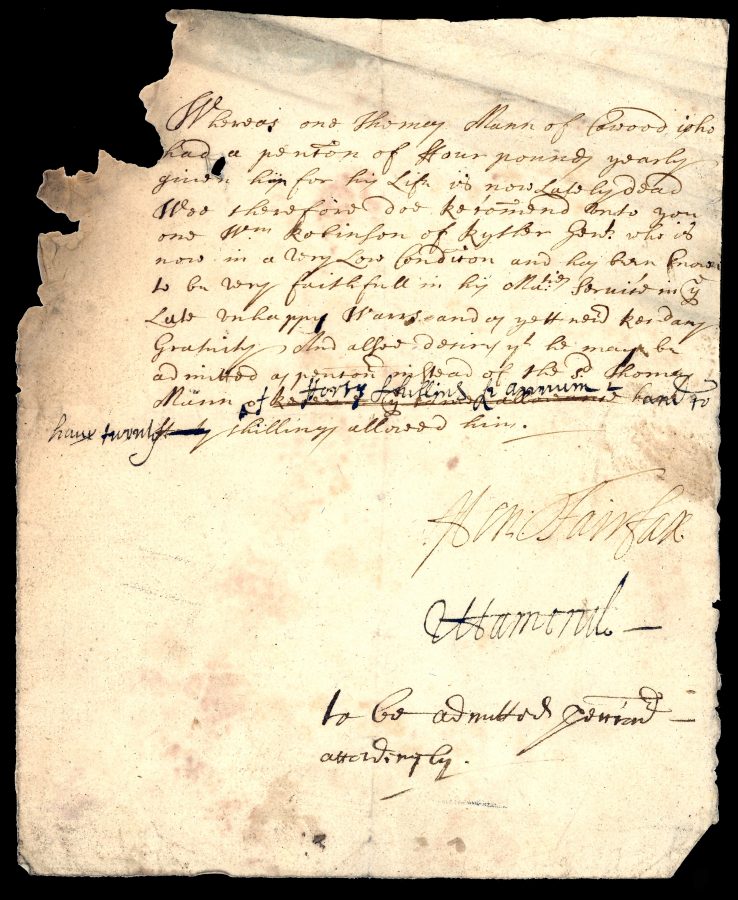 Whereas one Thomas Mann of Cawood who
had a pention of Four pounds yearly
given him for his Life is now Lately dead
Wee therefore doe Recomend unto you
one Wm Robinson of Ryther Gent. who is
now in a very Low Condition and has been knowne
to be very faithfull in his Maties Service in ye
Late unhappy Warrs and as yett never Recd any
Gratuity And allsoe desires yt he may be
admitted a pentionr instead of the sd Thomas
of Forty shillins p annum
Mann and to
have twenty shillings allowed him.
Hen: Fairfax
to be admitted pentionr
accordingly.